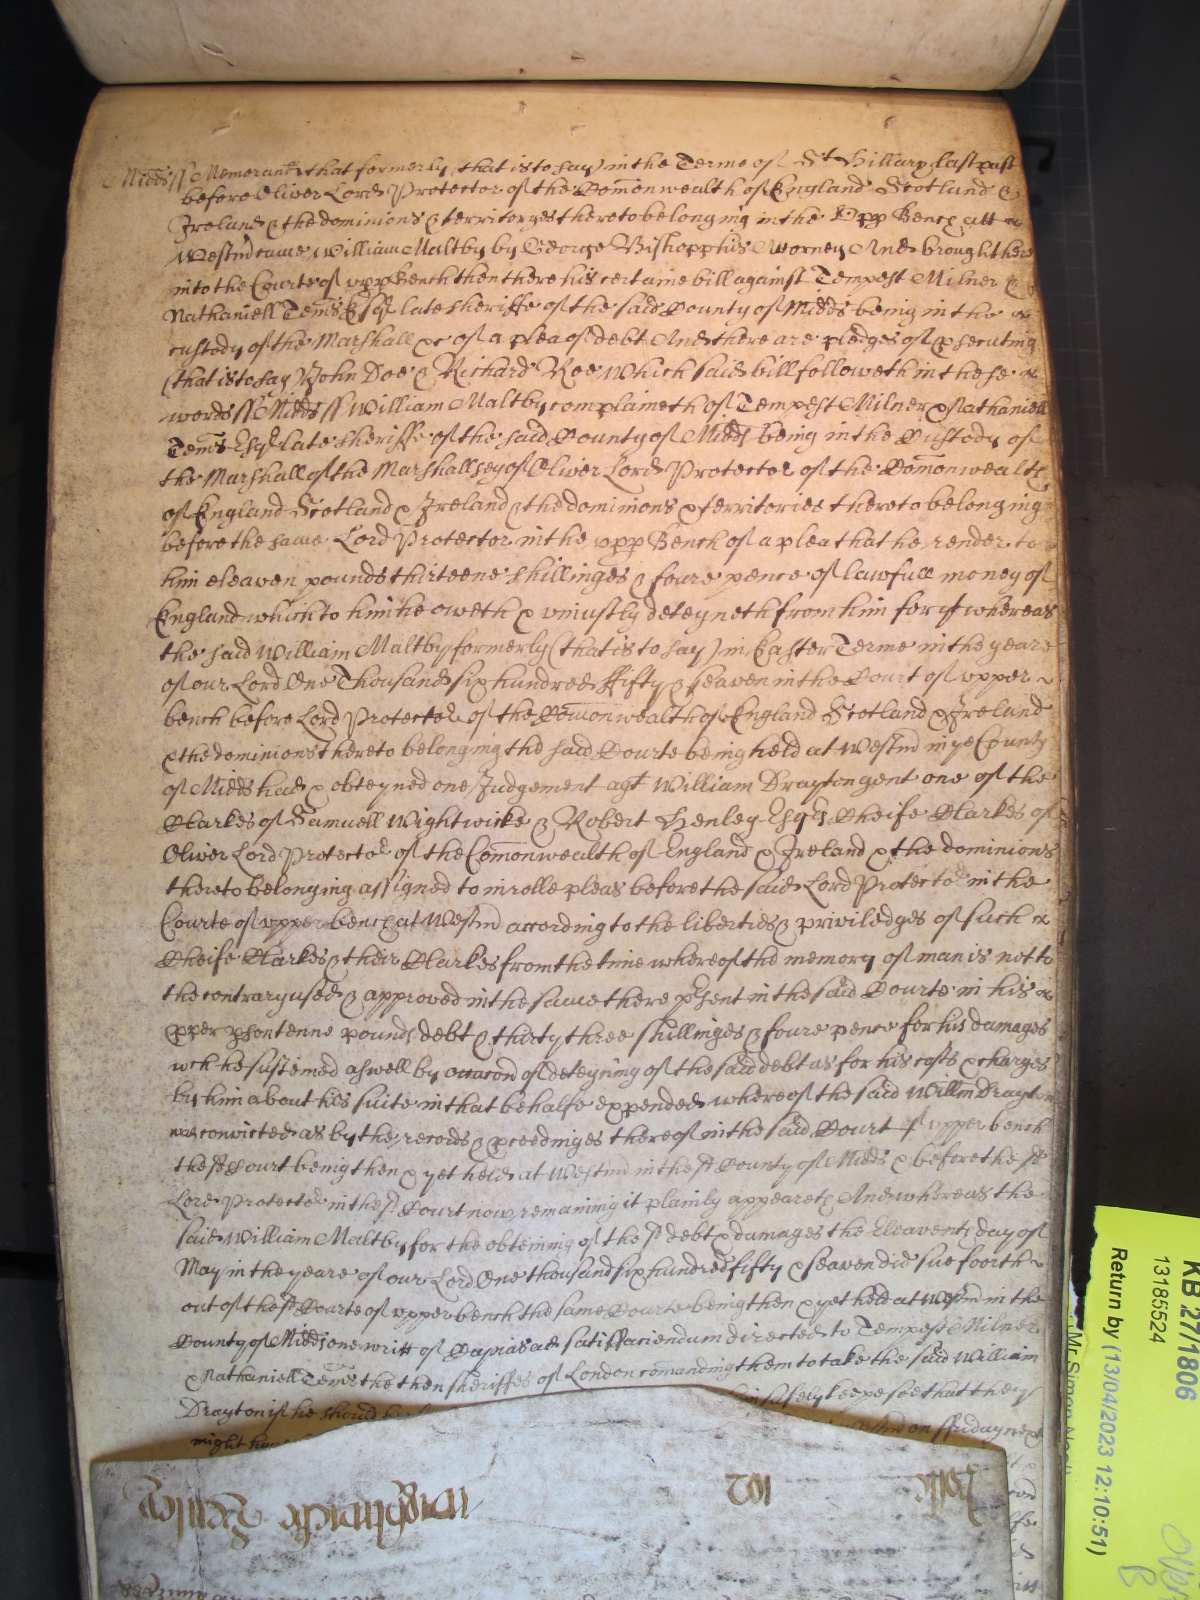 Midds ss Memorand that formerly (that is to say) in the Terme of St Hillary last past
before Oliver Lord Protector of the Comonwealth of England Scotland &
Ireland & the dominions & territoryes thereto belonging in the Upp Bench att
Westmr came William Maltby by George Bishopp his Attorney And brought here
into the Courte of upp Bench then there his certaine bill against Tempest Milner &
Nathaniell Tems Esqs late sheriffe of the said County of Midds being in the
custody of the Marshall &c of a plea of debt And there are pledges of psecuting
(that is to say) John Doe & Richard Roe Which said bill followeth in these
words ss Midds ss William Maltby complaineth of Tempest Milner & Nathaniell
Tems Esqs late sheriffe of the said County of Midds being in the Custody of
the Marshall of the Marshallsey of Oliver Lord Protector of the Comonwealth
of England Scotland & Ireland & the dominions & territories thereto belonging
before the same Lord Protector in the upp Bench of a plea that he render to
him eleaven pounds thirteene shillinges & foure pence of lawfull money of
England which to him he oweth & uniustly deteyneth from him for yt whereas
the said William Maltby formerly (that is to say) in Easter Terme in the yeare
of our Lord One Thousand six hundred ffifty & seaven in the Court of upper
bench before Lord Protector of the Comonwealth of England Scotland & Ireland
& the dominions thereto belonging the said Courte being held at Westmr in ye County
of Midds had & obteyned one Judgement agt William Drayton gent one of the
Clarkes of Samuell Wightwicke & Robert Henley Esqs Cheife Clarkes of
Oliver Lord Protector of the Comonwealth of England & Ireland & the dominions
thereto belonging assigned to inrolle pleas before the said Lord Protector in the
Courte of upper bench at Westmr according to the liberties & priviledges of such
Cheife Clarkes & their Clarkes from the time whereof the memory of man is not to
the contrary used & approved in the same there psent in the said Courte in his
pper pson tenne pounds debt & thirty three shillinges & foure pence for his damages
wch he susteined aswell by occacon of deteyning of the said debt as for his costs & charges
by him about his suite in that behalfe expended whereof the said Willm Drayton
was convicted as by the records & pceedinges thereof in the said Court of upper bench
the sd Court being then & yet held at Westmr in the sd County of Midds & before the sd
Lord Protector in the sd Court now remaining it plainly appeareth And whereas the
said William Maltby for the obteining of the sd debt & damages the Eleaventh day of
May in the yeare of our Lord One thousand six hundred fifty & seaven did sue foorth
out of the sd Courte of upper bench the same Courte being then & yet held at Westmr in the
County of Midds one writt of Capias ad satisfaciendum directed to Tempest Milner
& Nathaniell Tems the then sheriffes of London comanding them to take the said William
Drayton if he should him safely keepe soe that they
might have on ffriday next
Rolle 102 Wightwicke Henley
KB 27/1806
13185524
Return by (13/04/2023 12:10:51)
Mr Simon